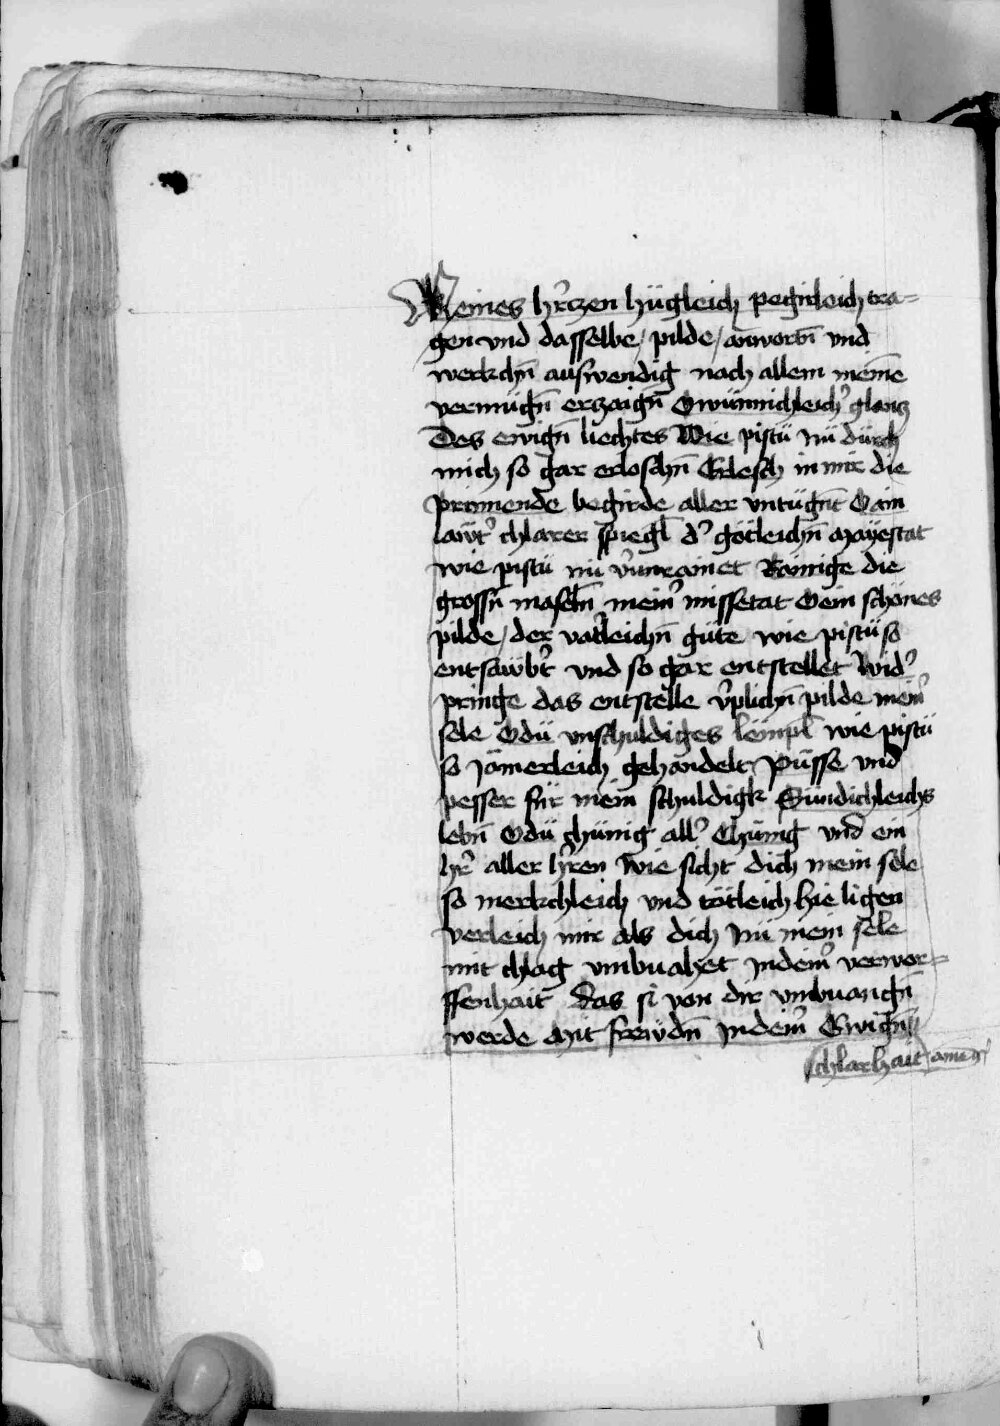 Meines hr̄czen hügleich pegirleich tra=
gen vnd dasselbe / pilde / anworttñ vnd
werkchñ auswendig nach allem meinē
vermügñ erczaigñ O wünnichleich' glancz
Des ewigñ liechtes Wie pistü nü dürch
mich so gar erloschñ Erlesch in mir die
prinnende begirde aller vntügñt O ain
lawt' chlarer spiegl d' götleichñ Mayestat
wie pistü nü v'unrainet Rainige die
grossñ masen mein' missetat O ein schönes
pilde / der vät'leichñ güte wie pistü so
entsawbt' vnd so gar entstellet Wid'
pringe das entstelle v'plichñ pilde mein'
sele O dü vnschuldiges lempl wie pistü
so Jämerleich gehandelt Püsse vnd
pesser für mein schuldigk Sündichleichs
lebñ O dü chünig all' Chünig vnd ein
hr' aller h'ren Wie sicht dich mein sele
so merkchleich vnd tötleich hie ligen
Verleich mir als dich Nü mein sele
mit chlag vmbuahet Indein' verwor=
ffenhait das si von dir vmbuangñ
werde Mit frewdñ Indein' Ewigñ
chlarhait / amen